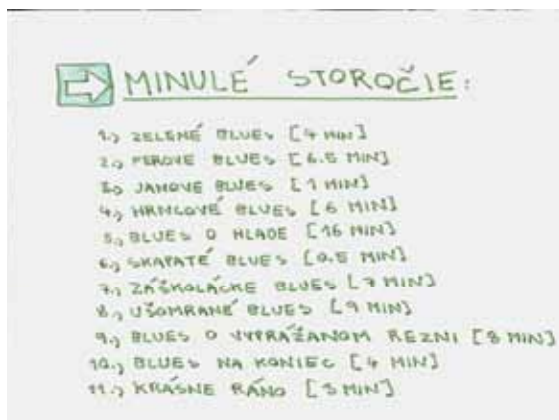 MINULÉ STOROČIE:
1.) ZELENÉ BLUES [4 MIN]
2.) PEROVE BLUES [6.5 MIN]
3.) JANOVE BLUES [1 MIN]
4.) HRNCOVÉ BLUES [6 MIN]
5.) BLUES O HLADE [16 MIN]
6.) SKAPATÉ BLUES [0.5 MIN]
7.) ZÁŠKOLÁCKE BLUES [7 MIN]
8.) UŠOMRANÉ BLUES [9 MIN]
9.) BLUES O VYPRÁŽANOM REZNI [8 MIN]
10.) BLUES NA KONIEC [4 MIN]
11.) KRÁSNE RÁNO [5 MIN]